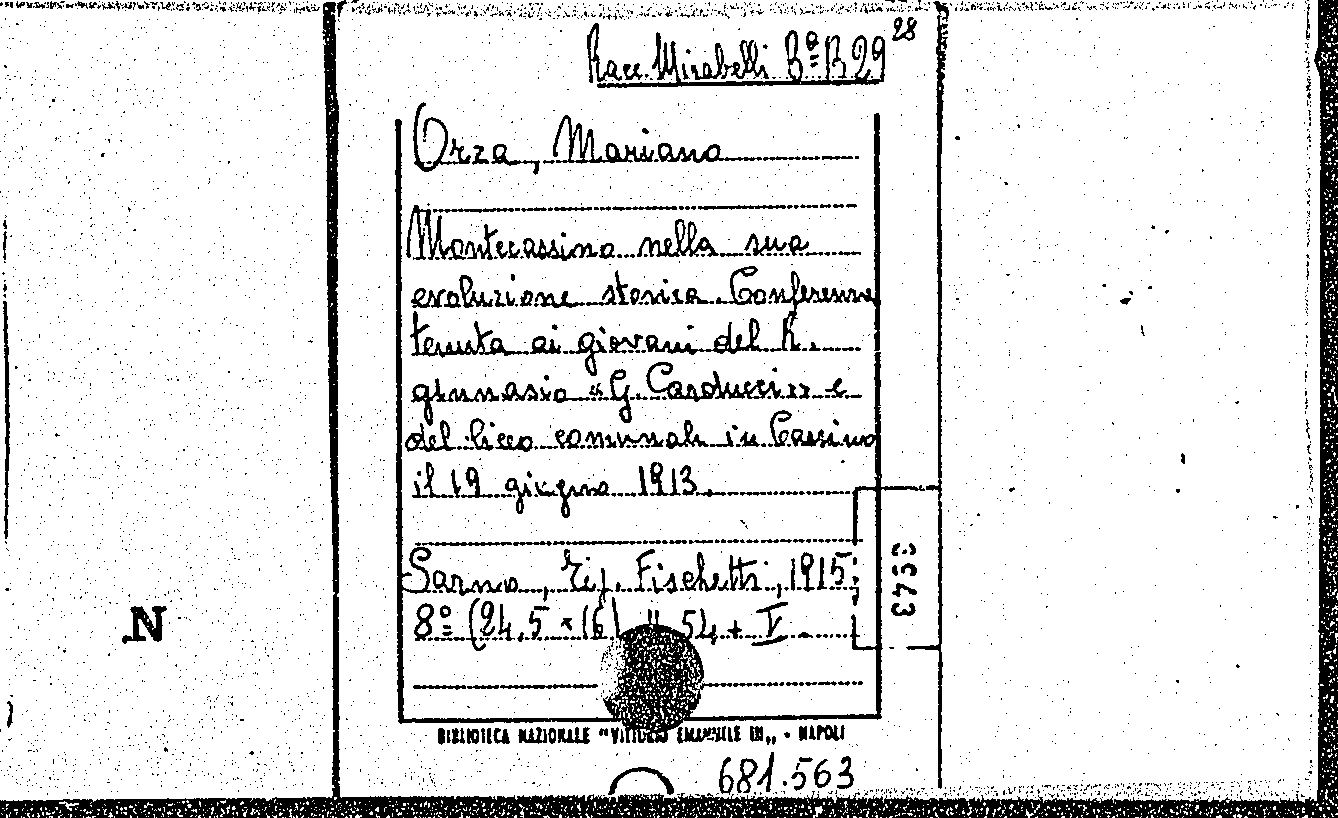 28
Racc. Mirabelli Bª B 29
Orza, Mariano
Montecassino nella sua
evoluzione storica. Conferenza
tenuta ai giovani del R.
ginnasio "G. Carducci" e
del liceo comunale in Cassino
il 19 giugno 1913.
Sarno, Tip. Fischetti, 1915.
8º (24,5 × 16) 54 + V.
3743
N
BIBLIOTECA NAZIONALE "VITTORIO EMANUELE III" - NAPOLI
681.563